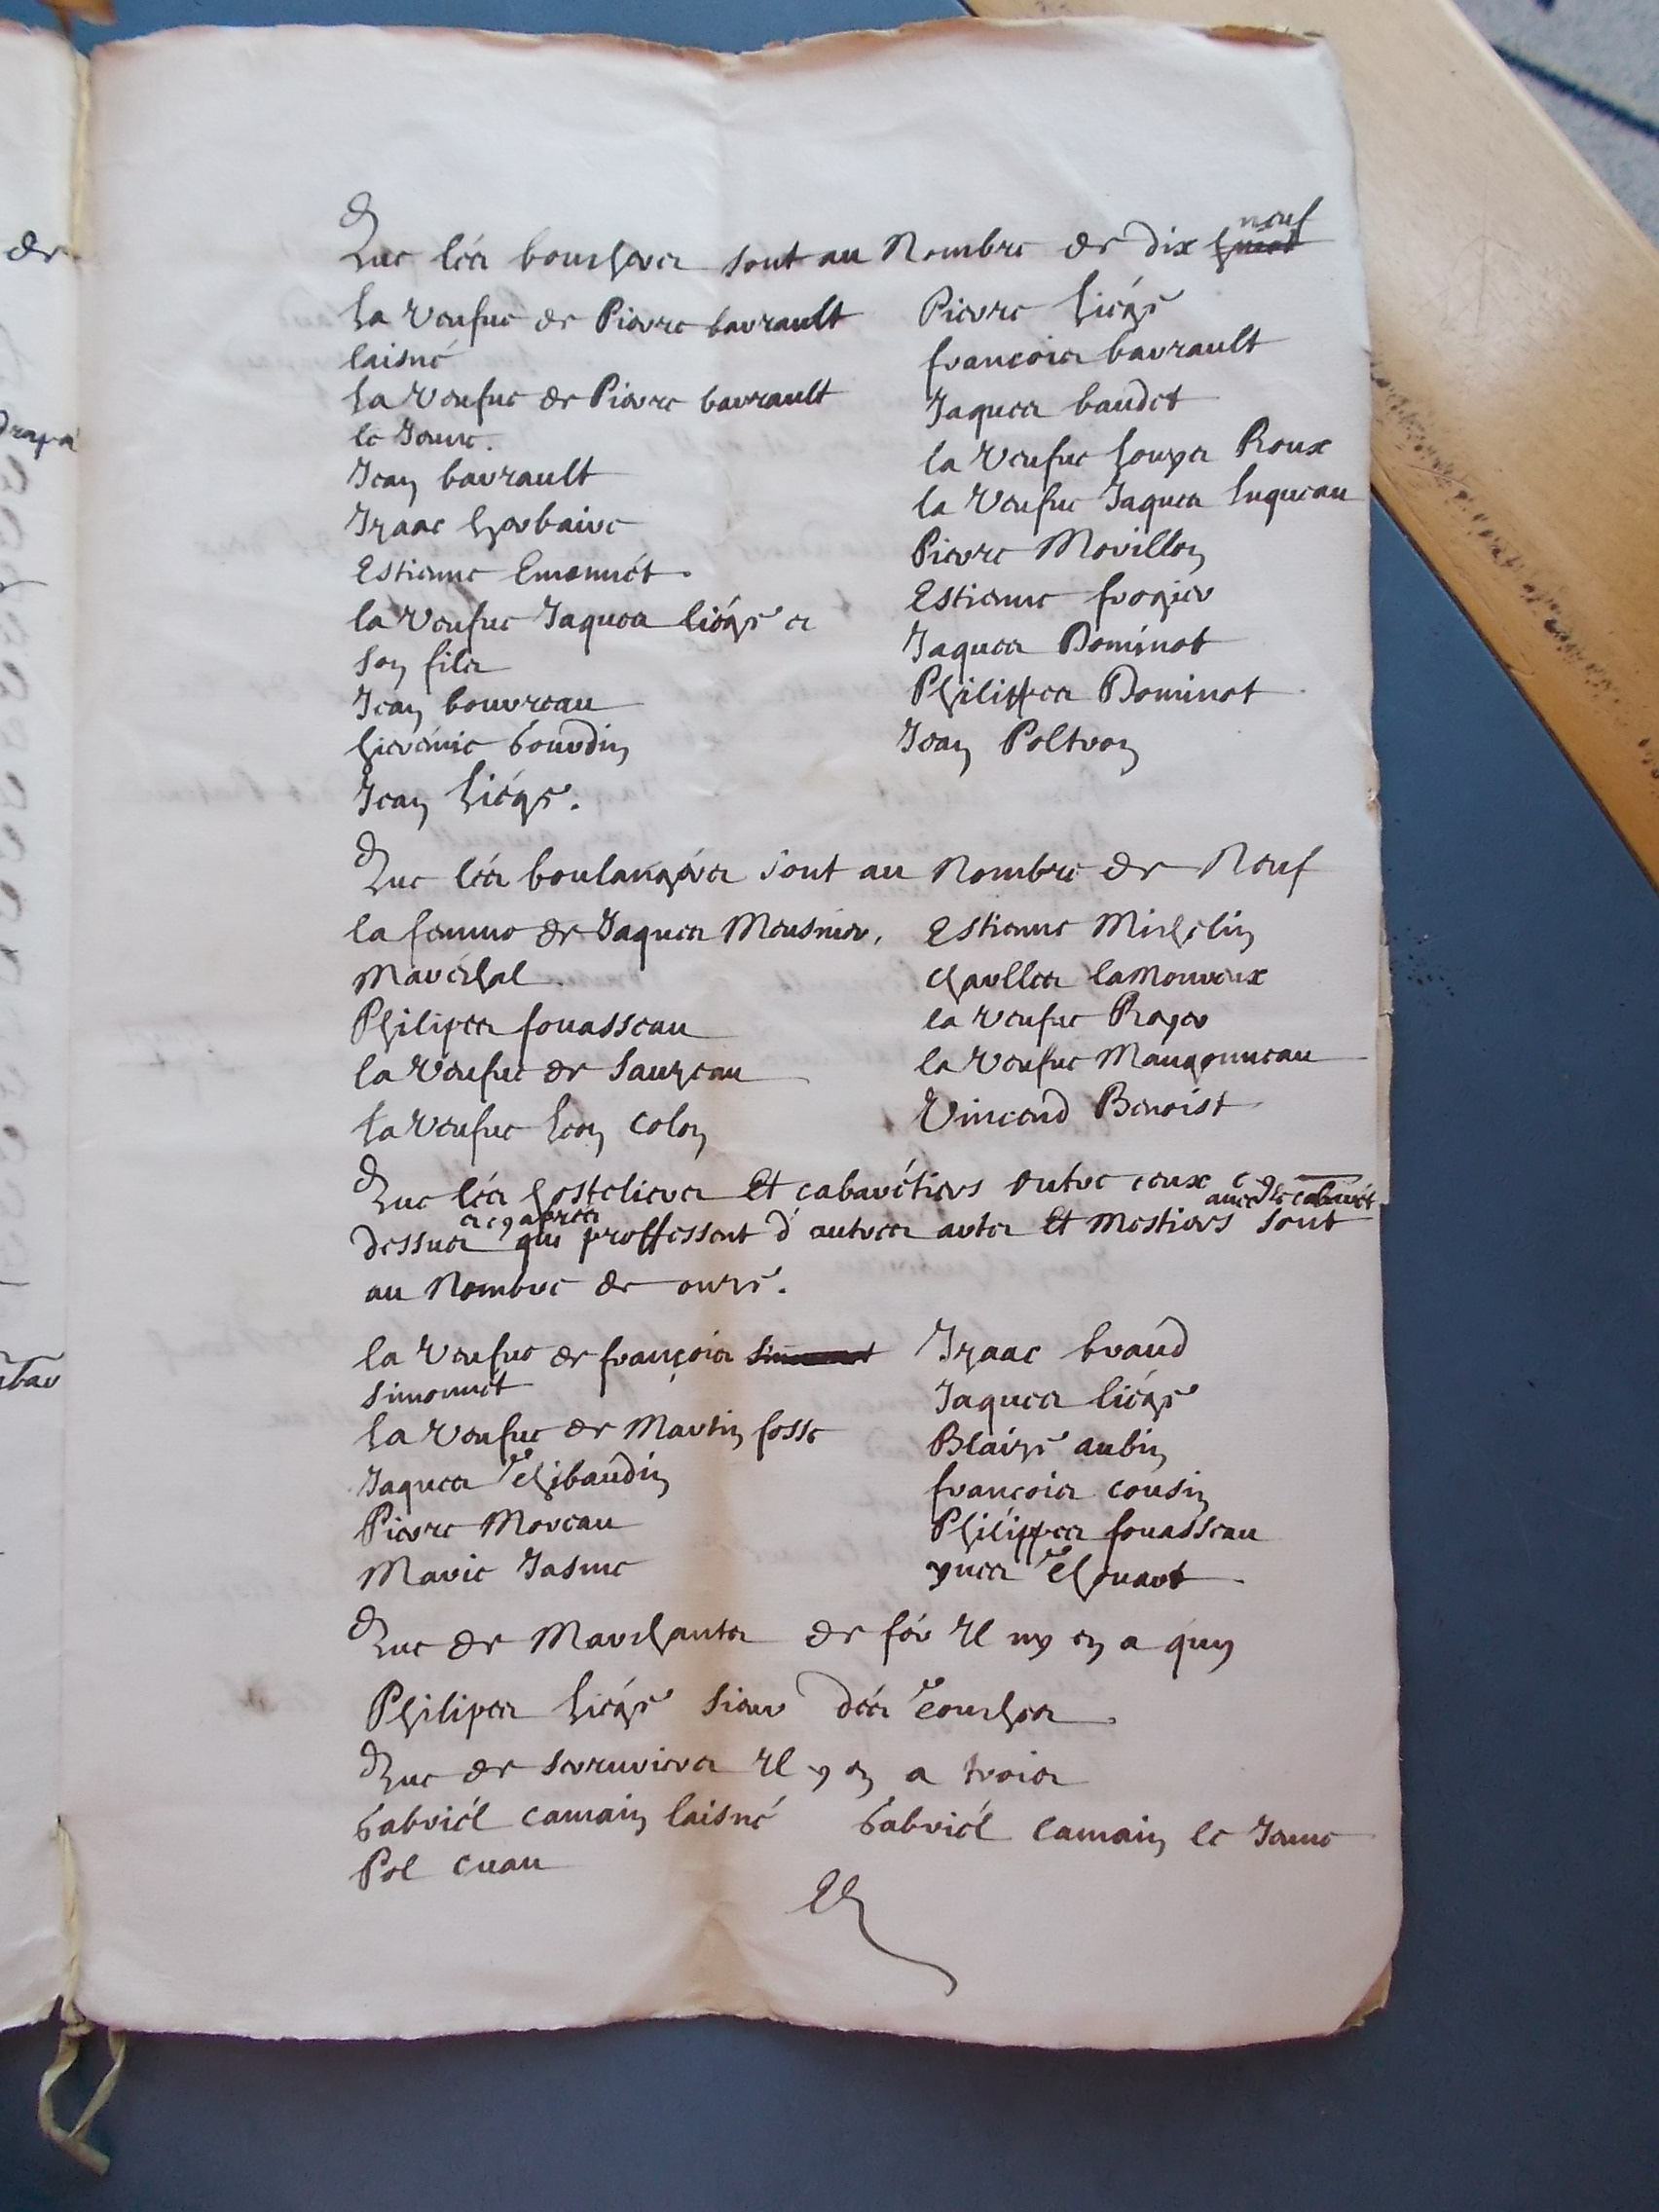 Que les bouchers sont au Nombre de dix huict neuf
la Veufue de Pierre barrault
laisné
la Veufue de Pierre barrault
le Jeune.
Jean barrault
Izaac Gerbaire
Estienne Emonnét.
la Veufue Jaques liége et
son fils
Jean bouureau
hierémie Gourdin
Jean Liége.
Pierre Liége
françois barrault
Jaques baudet
la Veufue Louys Roux
la Veufue Jaques Luqueau
Pierre Morillon
Estienne frogier
Jaques Dominot
Philippes Dominot
Jean Poltron
Que lés boulangérs sont au Nombre de Neuf
la femme de Jaques Meusnier,
Maréchal
Philipes fouasseau
la Veufue de Sauzeau
la Veufue Leon Colon
Estienne Michelin
Charlles lamoureux
la Veufue Roger
la Veufue Maugonneau
Vincend Benoist
Que lés hosteliers Et cabarétiers outre ceux cy
dessus et cy aprés qui proffessent d'autres arts Et Mestiers auec le cabarét sont
au Nombre de onze.
la Veufue de françois
simonnét
la Veufue de Martin fosse
Jaques Thibaudin
Pierre Moreau
Marie Jasme
Izaac braud
Jaques liége
Blaize aubin
françois cousin
Philippes fouasseau
yues Chouart
Que de Marchants de fér Il ny en a qun
Philipes Liége sieur dés Touches
Que de serruriers Il y en a trois
Gabriél camain laisné Gabriél Camain le Jeune
Pol cuau